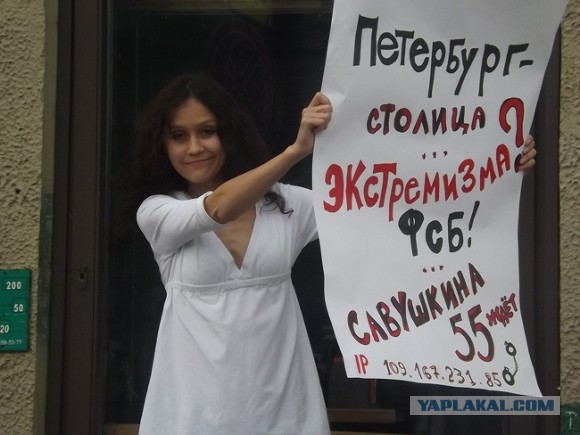 Петербург-
столица
...
экстремизма?
ФСБ!
...
Савушкина
55 ждёт
IP 109.167.231.85
200
50
20
YAPLAKAL.COM